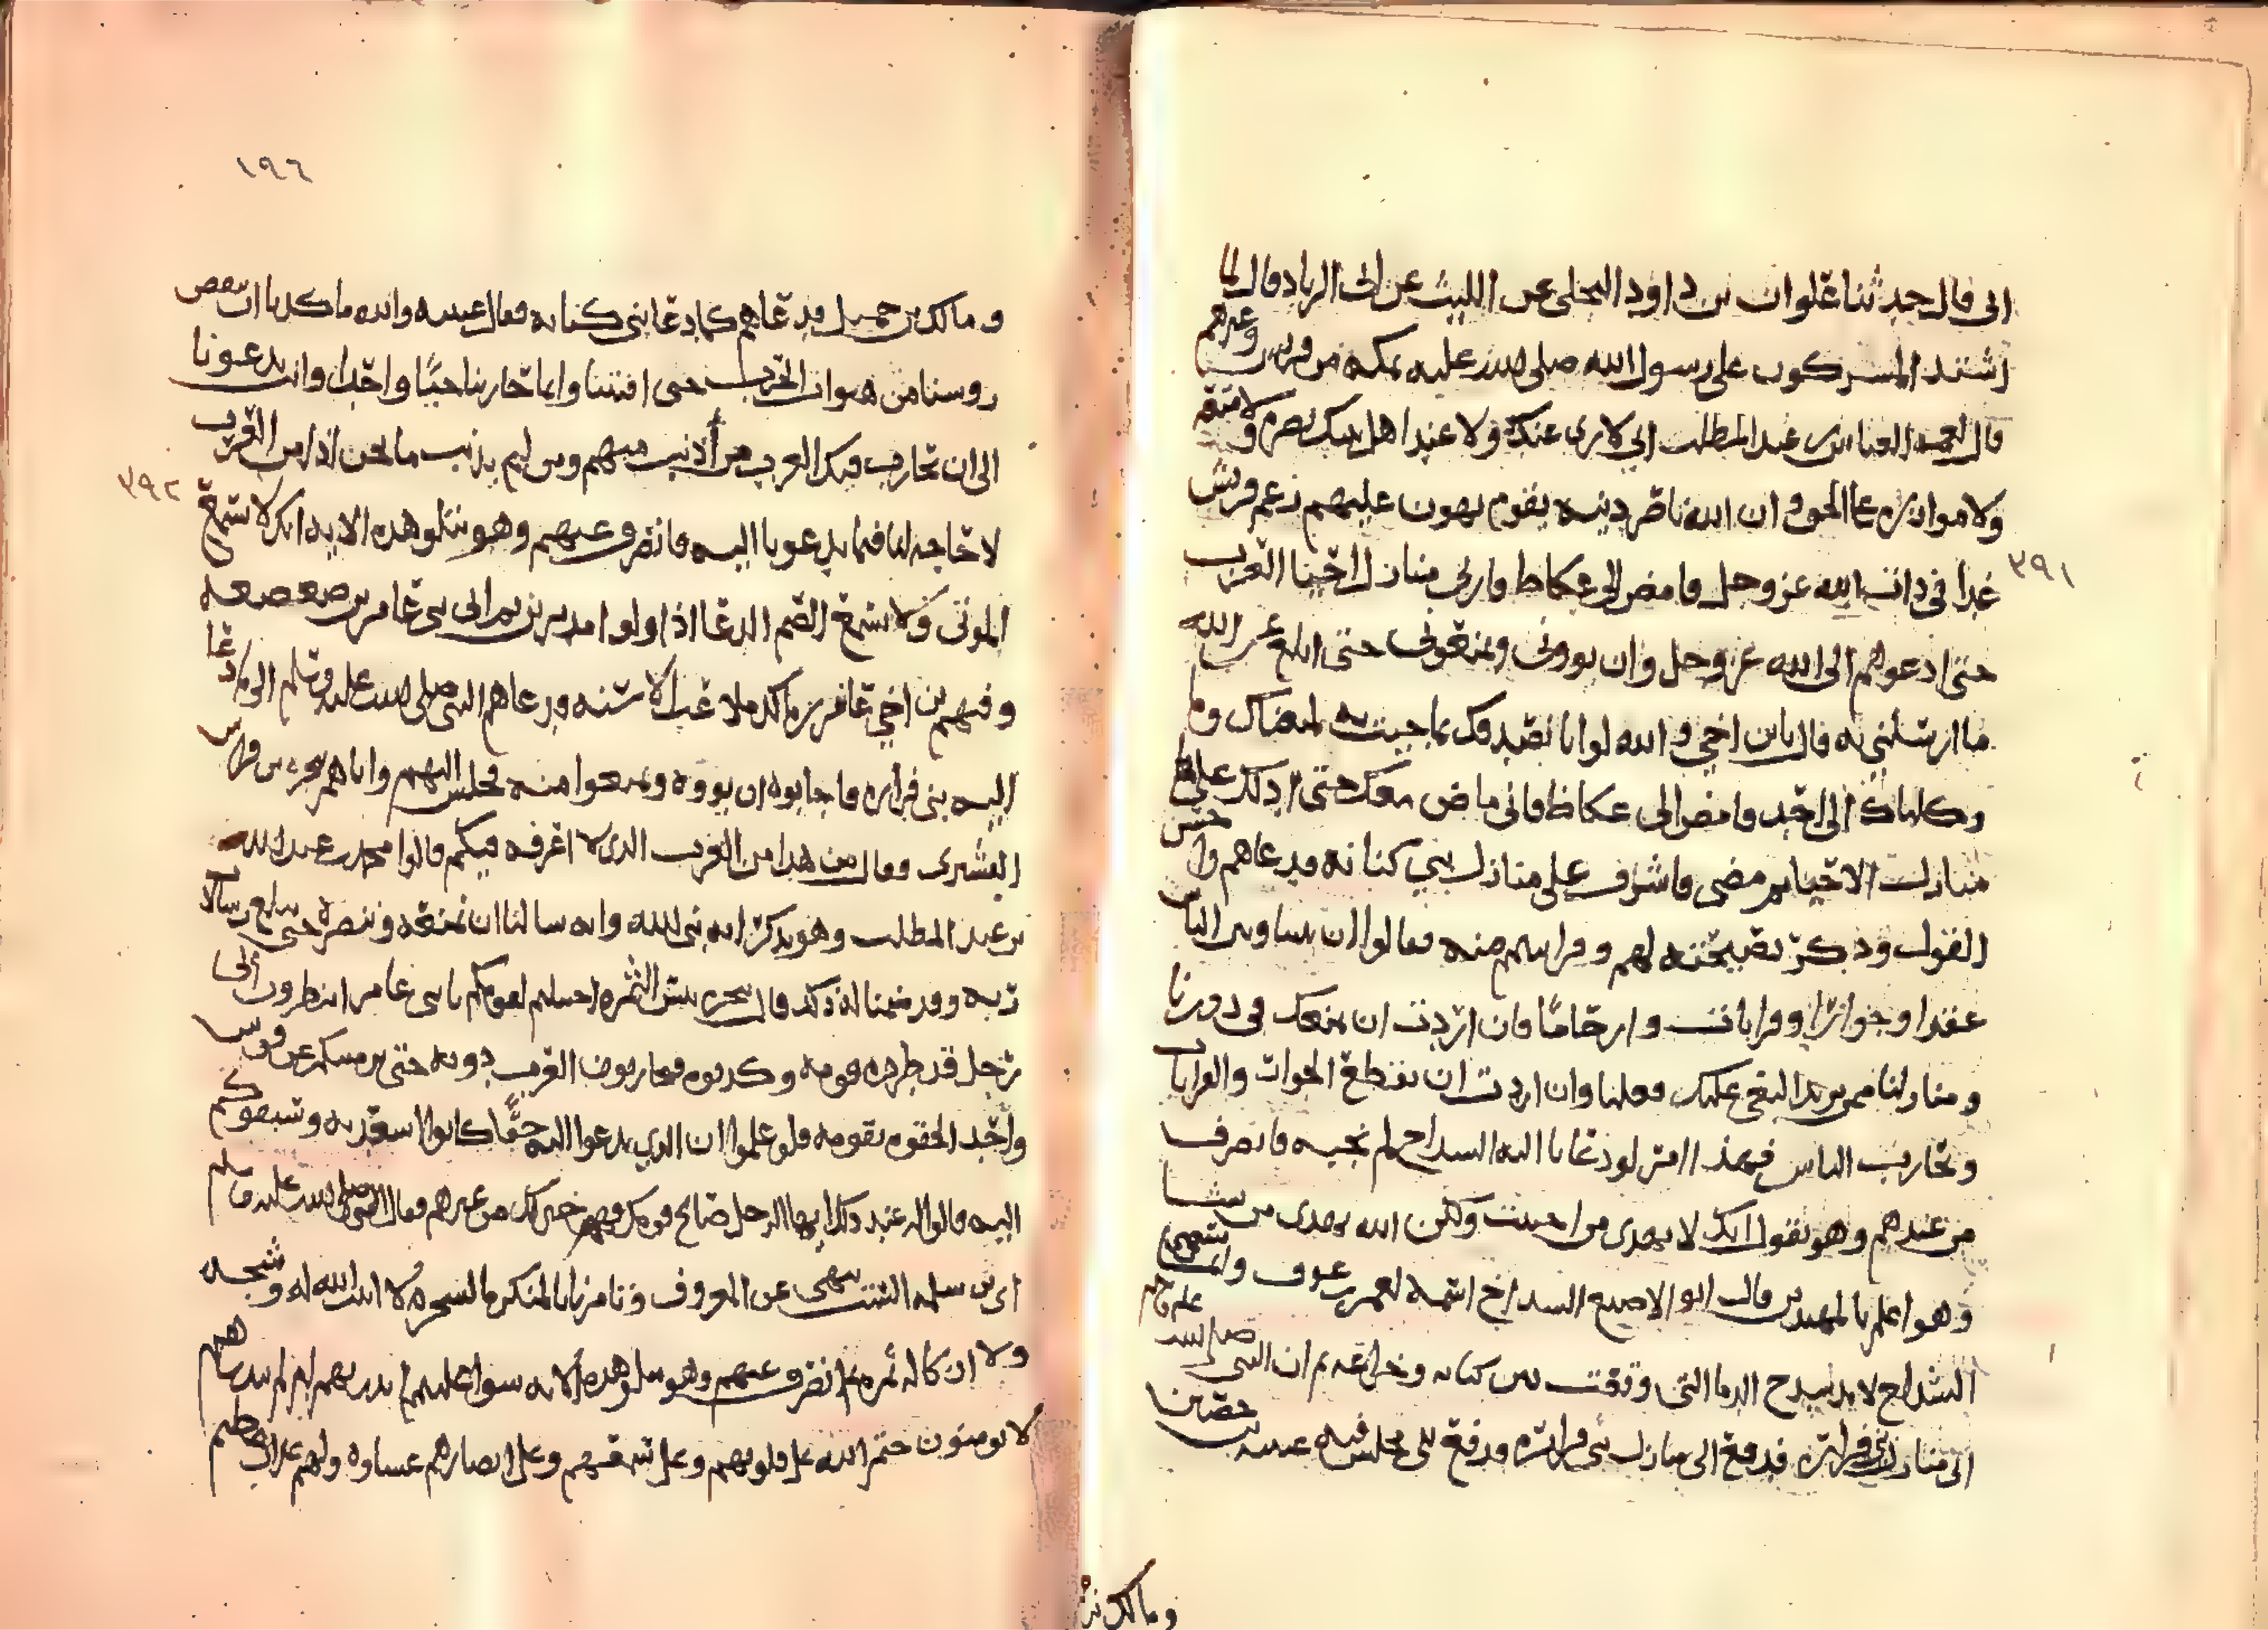 ابي قال حدثنا علوان بن داود البجلي عن الليث عن ابي الزناد قال لما
اشتد المشركون على رسول الله صلى الله عليه بمكة من قريش وغيرهم
قال لعمه العباس بن عبد المطلب اني لا ارى عندك ولا عند اهل بيتك نصرة ولا منعة
ولا موازرة على الحق وان الله ناصر دينه بقوم يهون عليهم رغم قريش
٣٩١
غدا في ذات الله عز وجل فامض الى عكاظ وارني منازل احيا العرب
حتى ادعوهم الى الله عز وجل وان يووني ويمنعوني حتى ابلغ عن الله
ما ارسلني به قال يابن اخي والله لو انا نصدقك بما جيت به لمنعناك وما
وكلناك الى احد فامض الى عكاظ فاني ماض معك حتى ادلك على
منازل الاحيا ثم مضى فاشرف على منازل بني كنانة فدعاهم واحسن
القول وذكر نصيحته لهم وقرابتهم منه فقالوا ان بيننا وبين الناس
عقدا وجوارا وقرابات وارحاما فان اردت ان نمنعك في دورنا
ومنازلنا ممن يريد البغي عليك فعلنا وان اردت ان نقطع الجوار والقرابات
ونحارب الناس فهذا امر لو دعانا اليه السداح لم نجبه فانصرف
من عندهم وهو يقول انك لا تهدي من احببت ولكن الله يهدي من يشا
وهو اعلم بالمهتدين قال ابو الاصبع السداح اسمه يعمر بن عوف وانما سمي
الشداخ لانه شدخ الدما التي وقعت بين كنانة وخزاعة ثم ان النبي صلى الله عليه
الى منازل بني فزارة فدفع الى منازل بني فزارة فدفع الى مجلس فيه عيينة بن حصين
ومالك بن
١٩٦
ومالك بن حميل فدعاهم كما دعا بني كنانة فقال عيينة والله ما كدنا ان ننفض
روسنا من هبوات الحرب حتى افتتنا وانما تحاربنا حيا واحدا وانت تدعونا
الى ان نحارب فيك العرب من اذنب منهم ومن لم يذنب ما نحن اذا من العرب
٣٩٢
لا حاجة لنا فيما تدعونا اليه فانصرف عنهم وهو يتلو هذه الاية انك لا تسمع
الموتى ولا تسمع الصم الدعا اذا ولوا مدبرين ثم اتى بني عامر بن صعصعة
وفيهم بن اخي عامر بن مالك ملاعب الاسنة فدعاهم النبي صلى الله عليه وسلم الى ما دعا
اليه بني فزارة فاجابوه ان يووه ويمنعوا منه فجلس اليهم واتاهم بيحرة بن فراس
القشيري فقال من هذا من العرب الذي لا اعرفه فيكم قالوا محمد بن عبد الله
بن عبد المطلب وهو يذكر انه نبي الله وانه سالنا ان نمنعه وننصره حتى يبلغ رسالات
ربه وقد ضمنا له ذلك قال بيحرة بيس الثمرة احتملتم لقومكم يا بني عامر انتظرون الى
رجل قد طرده قومه وكذبوه فتحاربون العرب دونه حتى يرميكم عن قوس
واحد الحق قوم بقومه فلو علموا ان الذي يدعوا اليه حقا كانوا اسعد به وسبقوكم
اليه قالوا له عند ذلك ايها الرجل صالح قومك فهم خير لك من غيرهم فقال النبي صلى الله عليه وسلم
اي بن سلمة الست تنهى عن المعروف وتامرنا بالمنكر يا بيحرة لا انبت الله له وشيجة
ولا ان كانت له ثمرة ثم انصرف عنهم وهو يتلو هذه الاية سوا عليهم انذرتهم ام لم تنذرهم
لا يومنون ختم الله على قلوبهم وعلى سمعهم وعلى ابصارهم غشاوة ولهم عذاب عظيم